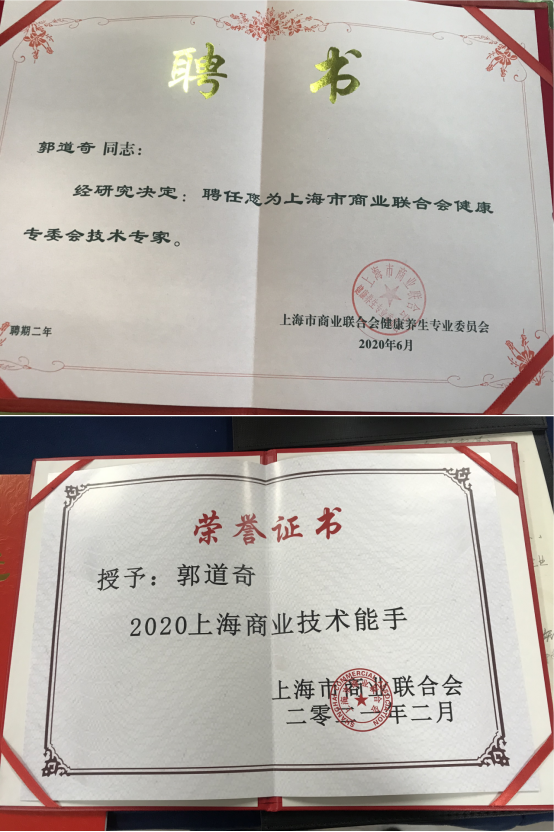 聘书
郭道奇 同志：
经研究决定：聘任您为上海市商业联合会健康
专委会技术专家。
上海市商业联合会
聘期二年
上海市商业联合会健康养生专业委员会
2020年6月
荣誉证书
授予：郭道奇
2020上海商业技术能手
上海市商业联合会
二零二一年二月
SHANGHAI COMMERCIAL ASSOCIATION